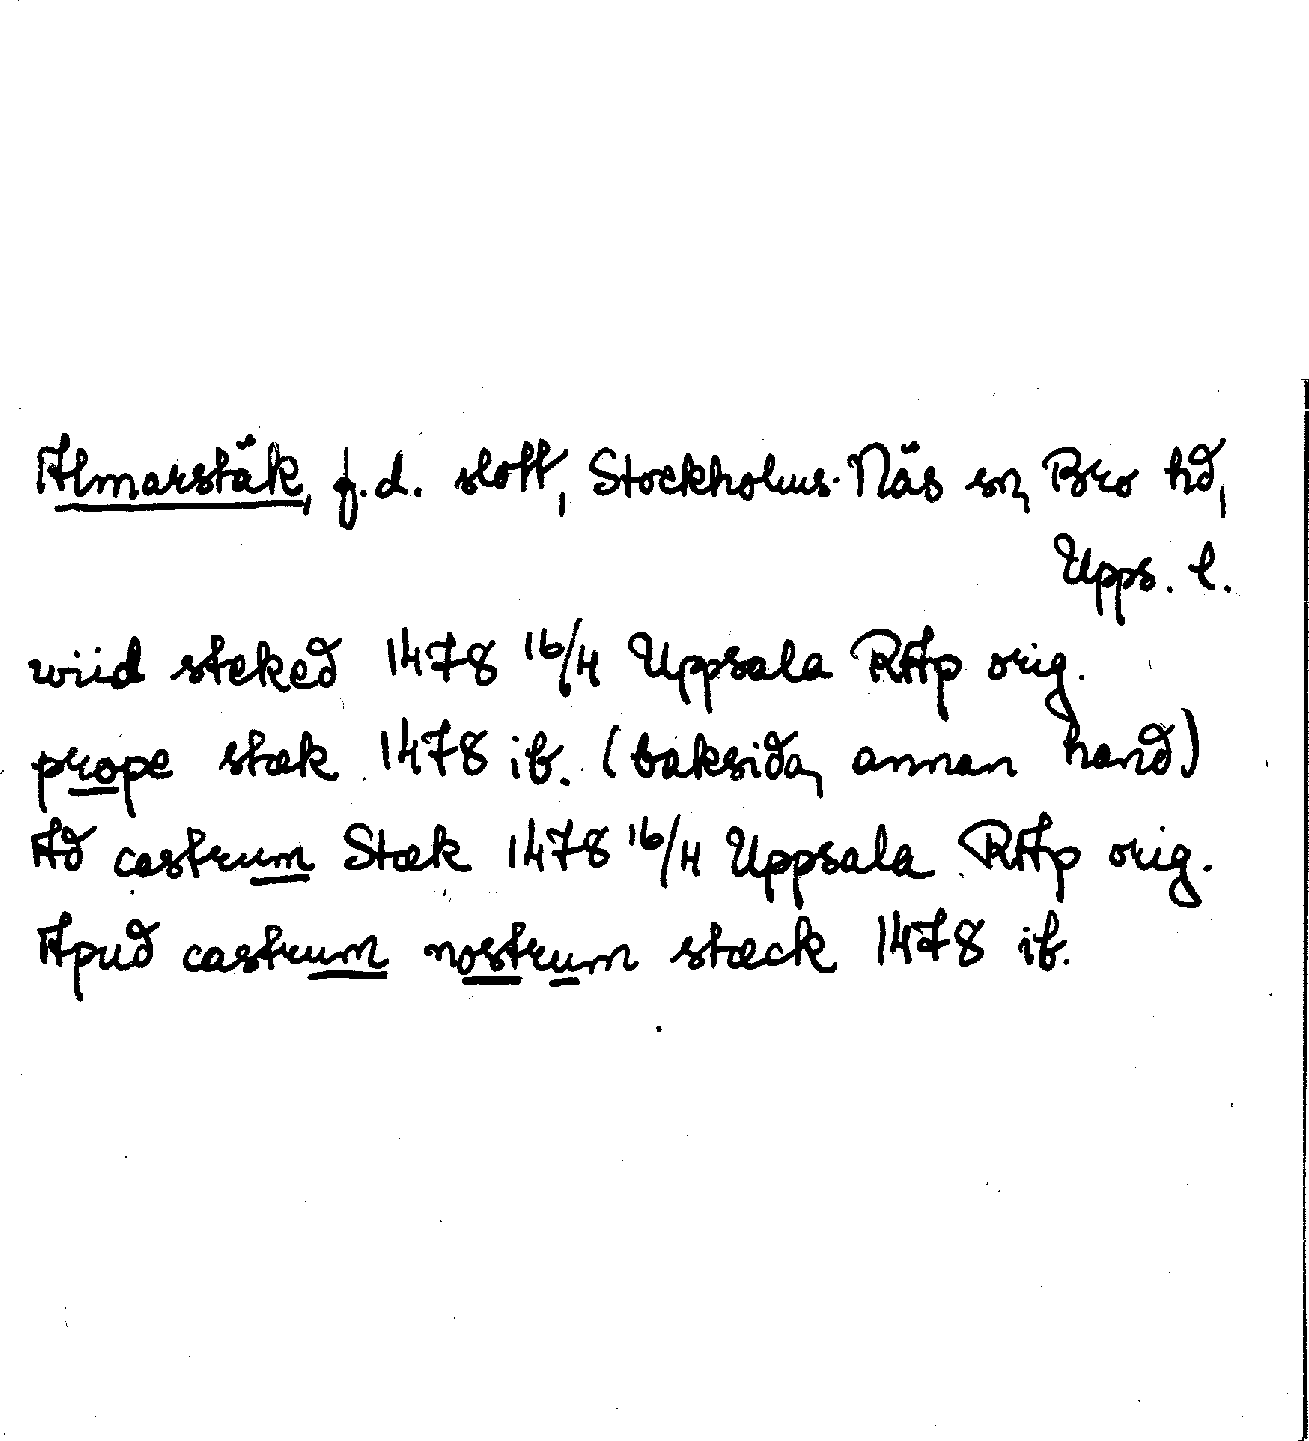 Almarstäk, f.d. slott, Stockholms-Näs sn, Bro hd,
Upps. l.
wiid stæked 1478 16/4 Uppsala RAp orig.
prope stæk 1478 ib. (baksida, annan hand)
Ad castrum Stæk 1478 16/4 Uppsala RAp orig.
Apud castrum nostrum stæck 1478 ib.